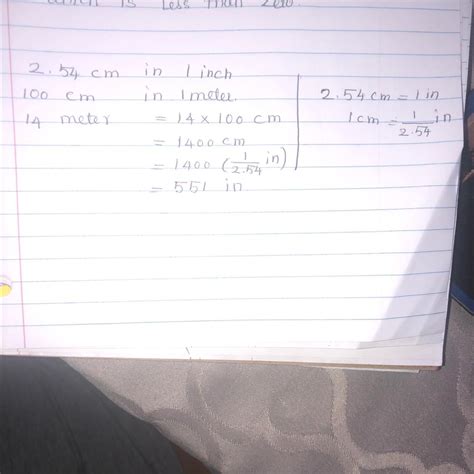 which is less than zero.
2.54 cm in 1 inch
100 cm in 1 meter.
14 meter = 14 x 100 cm
= 1400 cm
= 1400 (1/2.54 in)
= 551 in
2.54 cm = 1 in
1 cm = 1/2.54 in